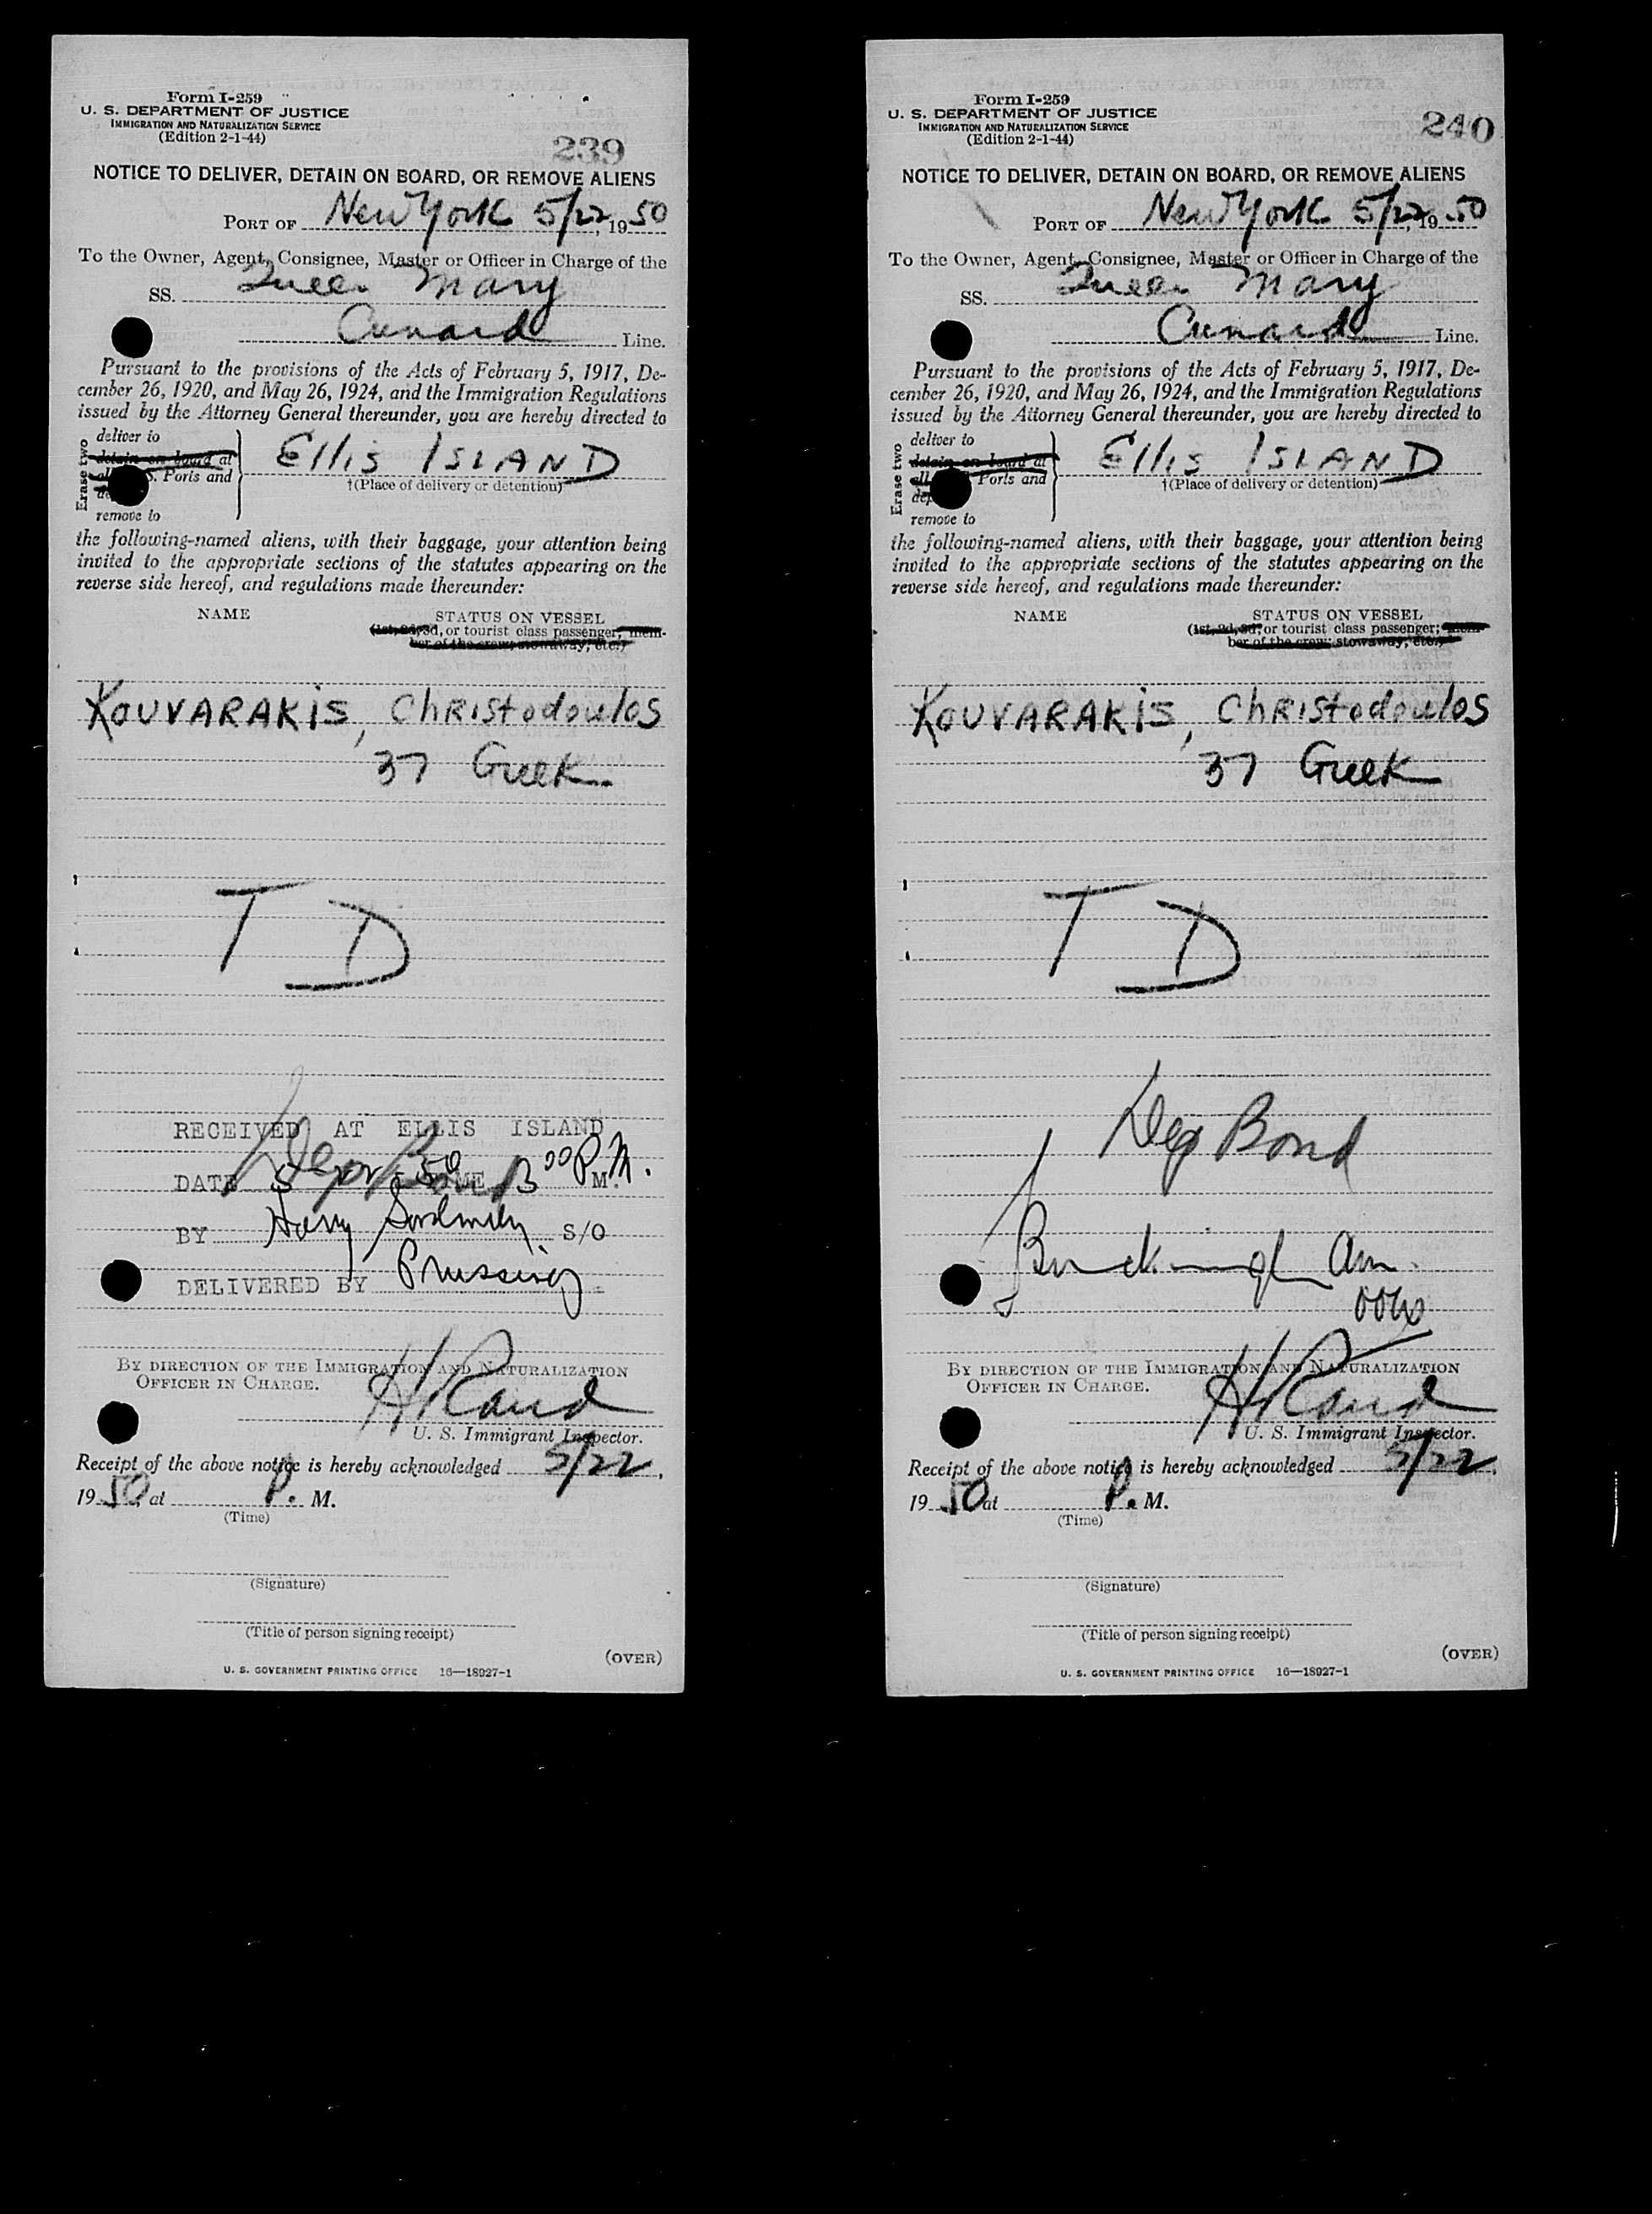 Form I-259
U. S. DEPARTMENT OF JUSTICE
IMMIGRATION AND NATURALIZATION SERVICE
(Edition 2-1-44)
239
NOTICE TO DELIVER, DETAIN ON BOARD, OR REMOVE ALIENS
PORT OF New York 5/22, 1950
To the Owner, Agent, Consignee, Master or Officer in Charge of the
SS. Queen Mary
Cunard Line.
Pursuant to the provisions of the Acts of February 5, 1917, De-
cember 26, 1920, and May 26, 1924, and the Immigration Regulations
issued by the Attorney General thereunder, you are hereby directed to
Erase two
deliver to
detain on board at
S. Ports and
remove to
Ellis ISLAND
†(Place of delivery or detention)
the following-named aliens, with their baggage, your attention being
invited to the appropriate sections of the statutes appearing on the
reverse side hereof, and regulations made thereunder:
NAME STATUS ON VESSEL
(1st, 2d, 3d, or tourist class passenger; mem-
ber of the crew; stowaway; etc.)
KOUVARAKiS, ChRIStodoulos
37 Greek
T D
RECEIVED AT ELLIS ISLAND
DATE 5 50 3 00 P.M.
BY Harry S/O
DELIVERED BY
BY DIRECTION OF THE IMMIGRATION AND NATURALIZATION
OFFICER IN CHARGE.
H Rand
U. S. Immigrant Inspector.
Receipt of the above notice is hereby acknowledged 5/22,
1950, at P. M.
(Time)
(Signature)
(Title of person signing receipt)
(OVER)
U. S. GOVERNMENT PRINTING OFFICE 16—18927-1
Form I-259
U. S. DEPARTMENT OF JUSTICE
IMMIGRATION AND NATURALIZATION SERVICE
(Edition 2-1-44)
240
NOTICE TO DELIVER, DETAIN ON BOARD, OR REMOVE ALIENS
PORT OF New York 5/22, 1950
To the Owner, Agent, Consignee, Master or Officer in Charge of the
SS. Queen Mary
Cunard Line.
Pursuant to the provisions of the Acts of February 5, 1917, De-
cember 26, 1920, and May 26, 1924, and the Immigration Regulations
issued by the Attorney General thereunder, you are hereby directed to
Erase two
deliver to
detain on board at
all Ports and
remove to
Ellis ISLAND
†(Place of delivery or detention)
the following-named aliens, with their baggage, your attention being
invited to the appropriate sections of the statutes appearing on the
reverse side hereof, and regulations made thereunder:
NAME STATUS ON VESSEL
(1st, 2d, 3d, or tourist class passenger; mem-
ber of the crew; stowaway; etc.)
KOUVARAKiS, ChRIStodoulos
37 Greek
T D
Dep Bond
BY DIRECTION OF THE IMMIGRATION AND NATURALIZATION
OFFICER IN CHARGE.
H Rand
U. S. Immigrant Inspector.
Receipt of the above notice is hereby acknowledged 5/22,
1950 at P. M.
(Time)
(Signature)
(Title of person signing receipt)
(OVER)
U. S. GOVERNMENT PRINTING OFFICE 16—18927-1